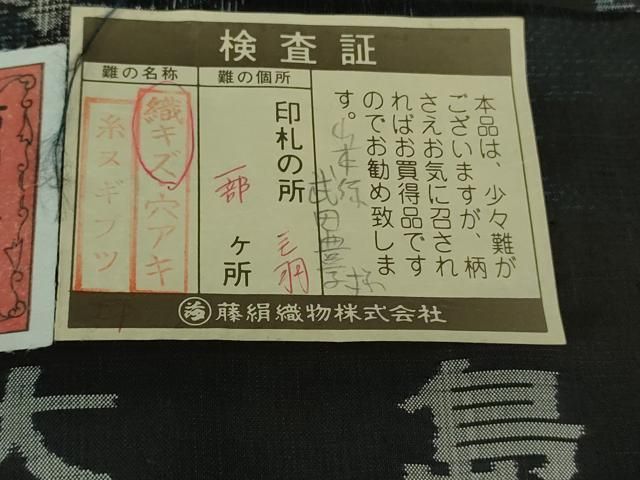 検査証
本品は、少々難が
ございますが、柄
さえお気に召され
ればお買得品です
のでお勧め致しま
す。
難の個所
印札の所
一部
ヶ所
難の名称
織キズ 穴アキ
糸ヌギフツ
藤絹織物株式会社
大島